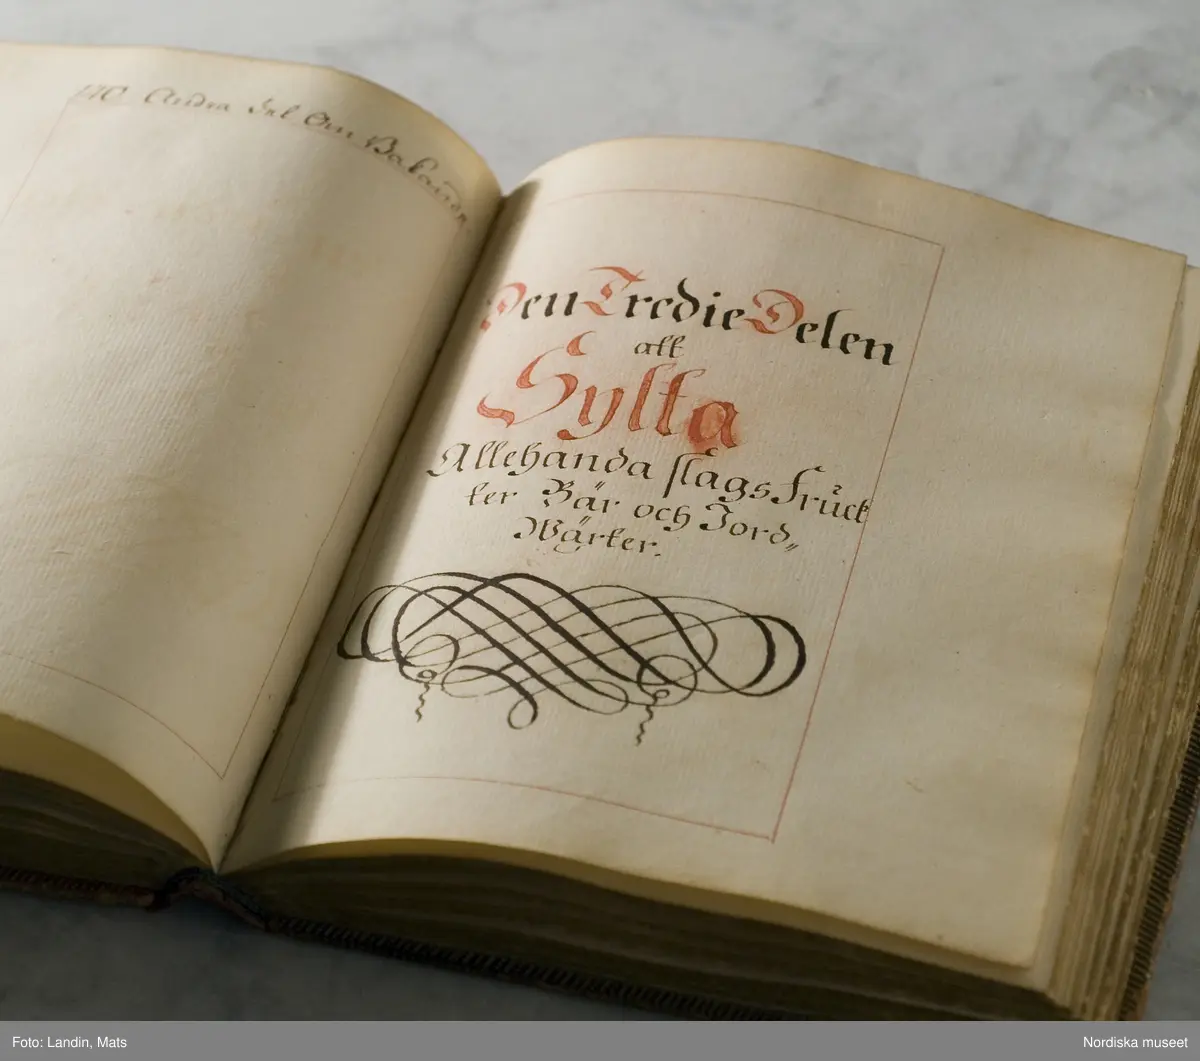 170 Andra Del Om Bakande
Den Tredie Delen
att
Sylta
Allehanda slags Fruck
ter Bär och Jord„
Wärter.
Foto: Landin, Mats
Nordiska museet